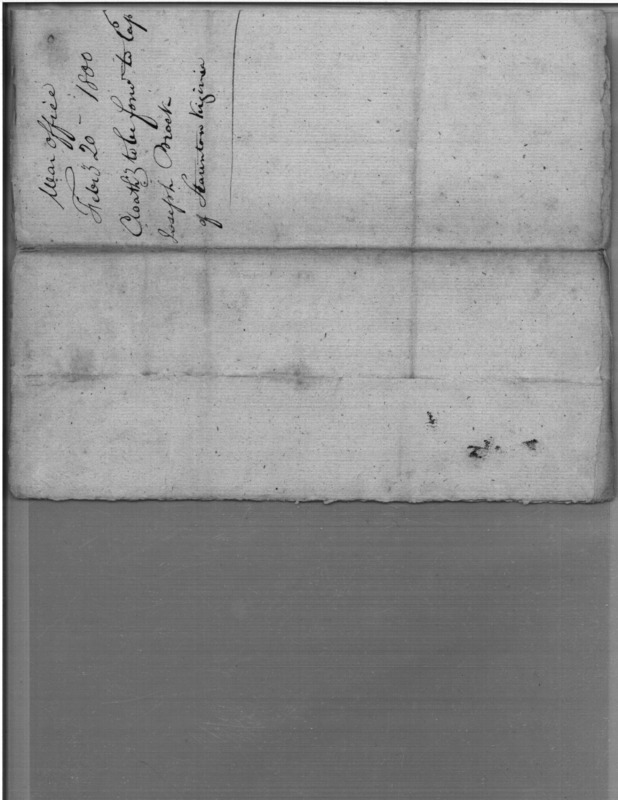 War Office
Feby 20 - 1800
Cloathg to be forwd to Cap
Joseph Brock
of Staunton Virginia